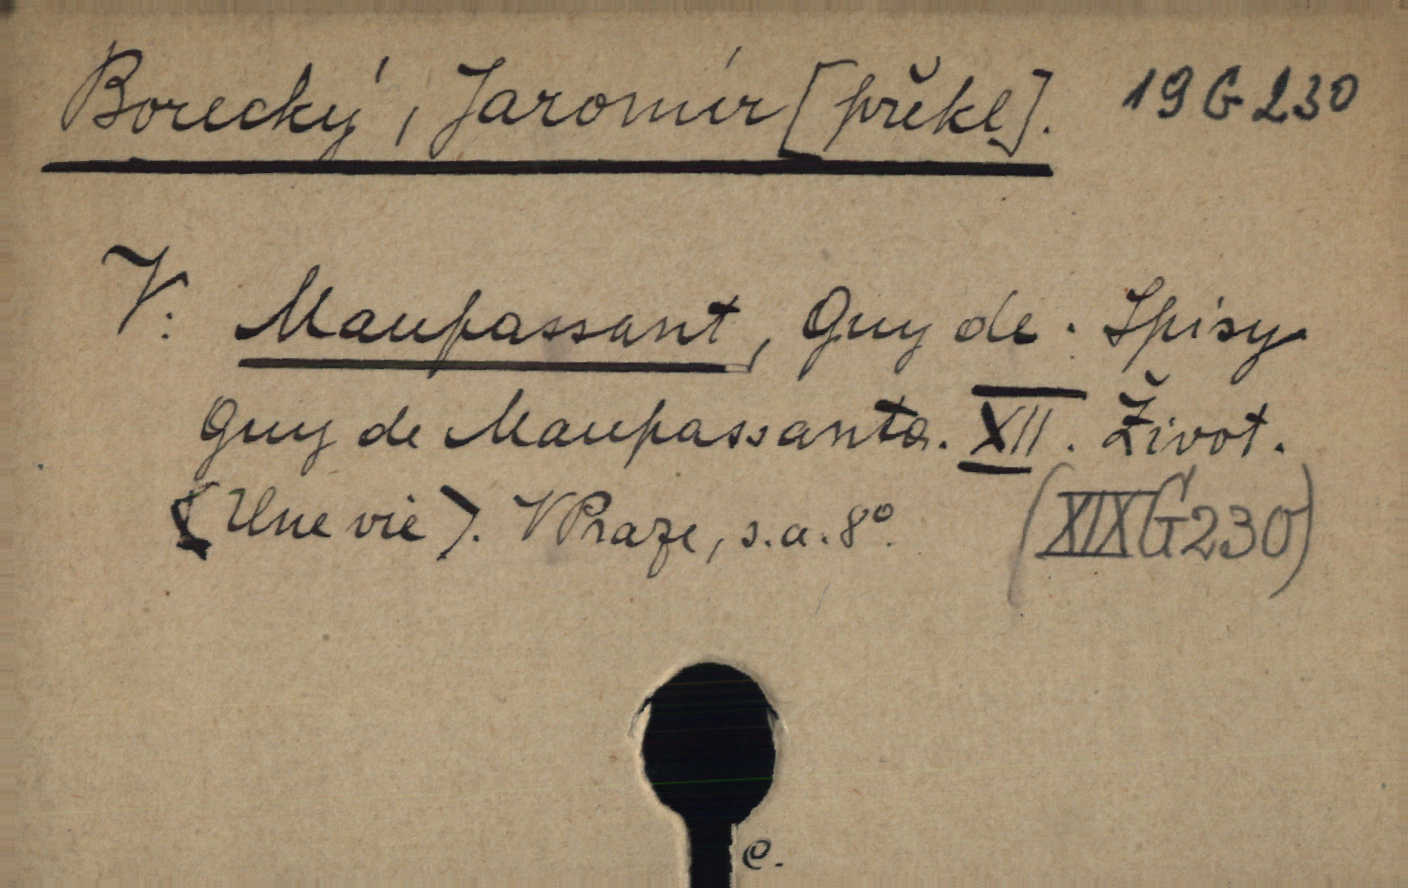 Borecký, Jaromír [překl]. 19 G 230
V: Maupassant, Guy de. Spisy
Guy de Maupassanta. XII. Život.
(Une vie). V Praze, s.a. 8°.
(XIX G 230)
e.